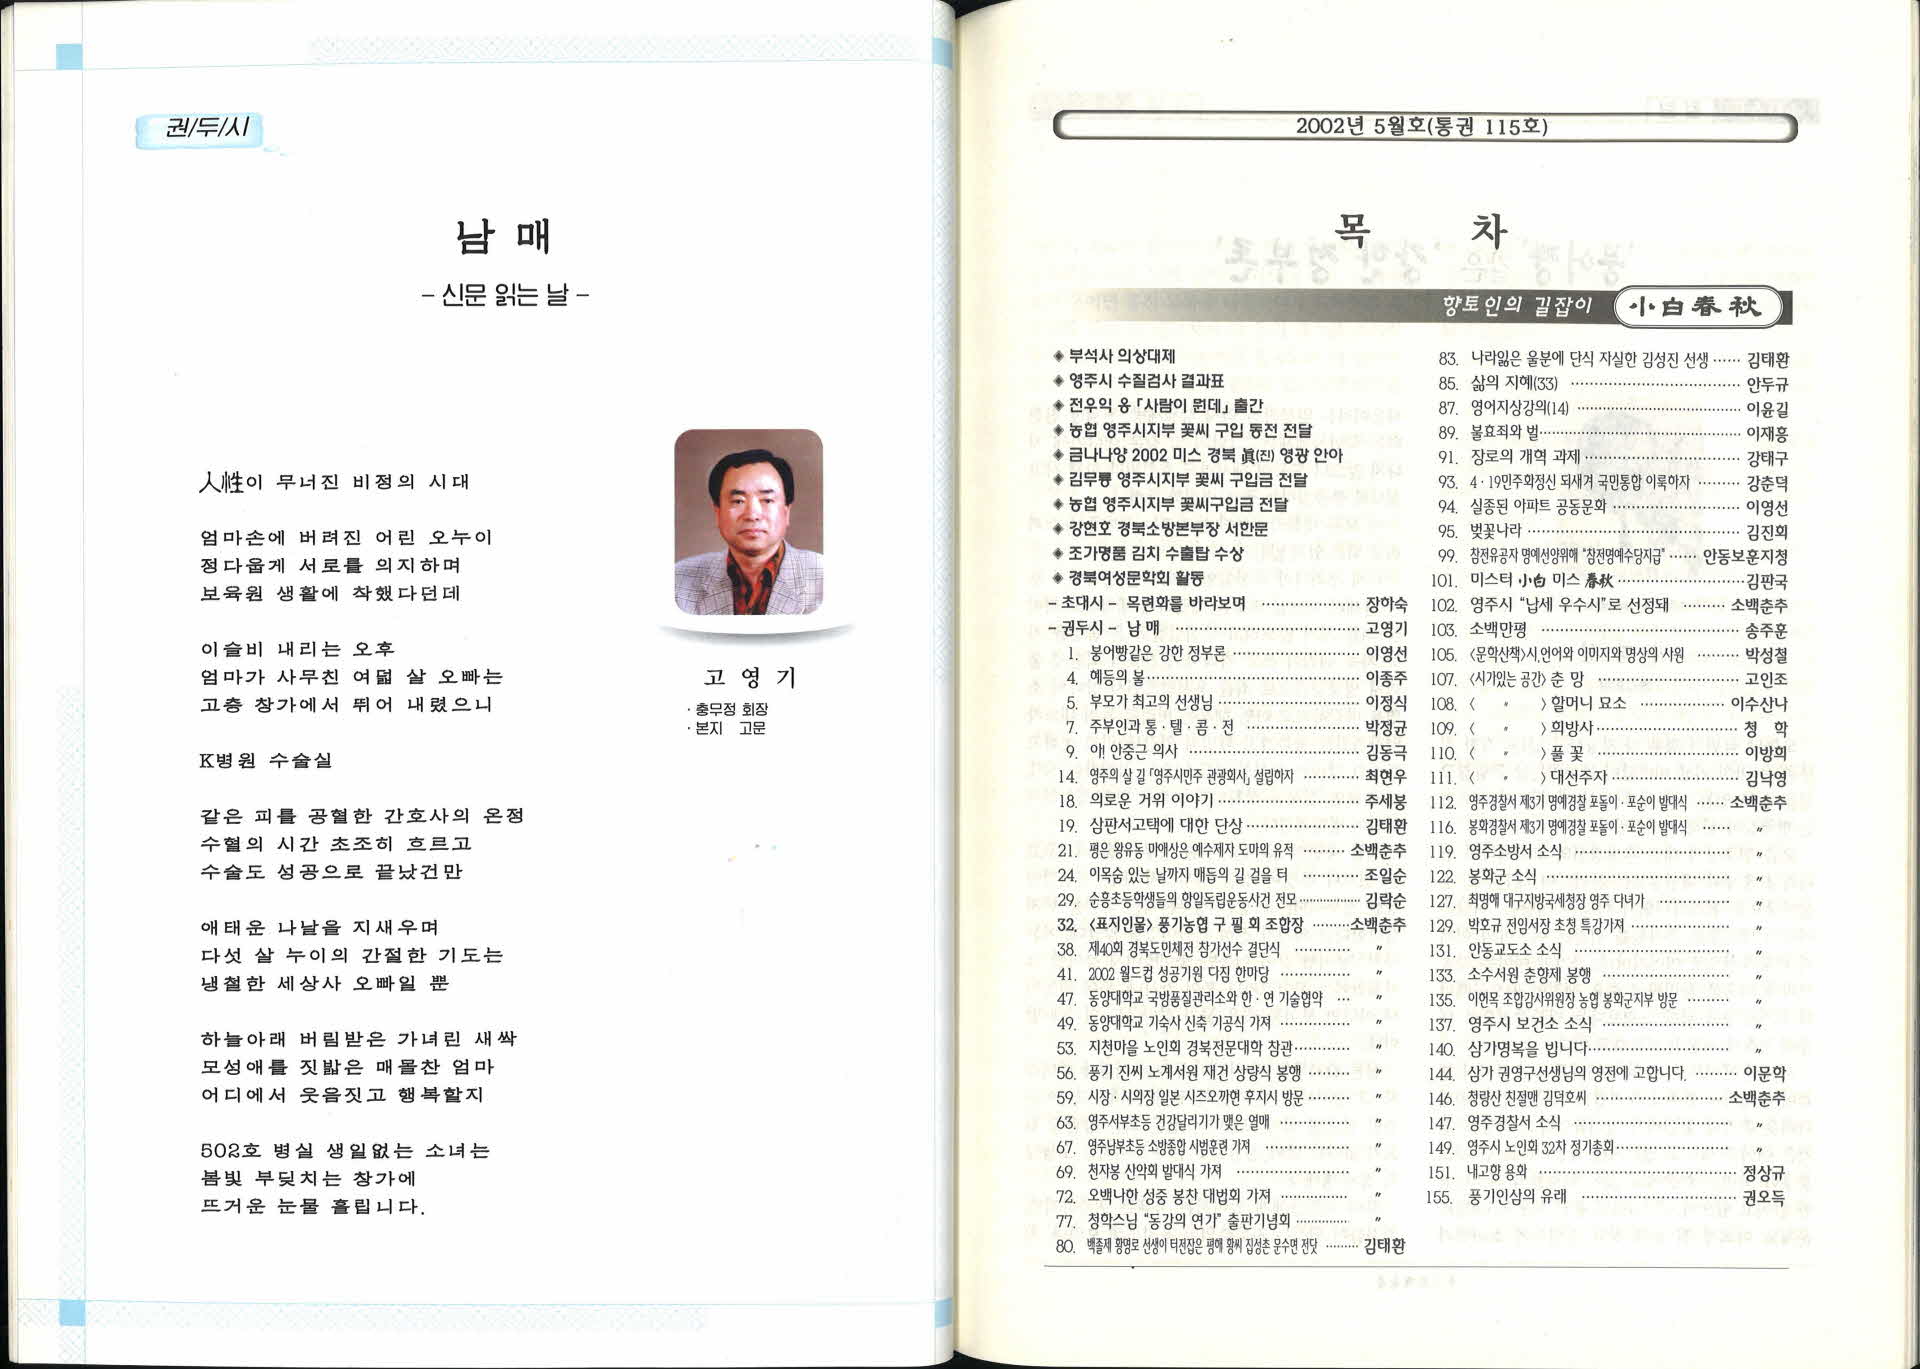 권/두/시
남 매
- 신문 읽는 날 -
人性이 무너진 비정의 시대
엄마손에 버려진 어린 오누이
정다웁게 서로를 의지하며
보육원 생활에 착했다던데
이슬비 내리는 오후
엄마가 사무친 여덟 살 오빠는
고층 창가에서 뛰어 내렸으니
K병원 수술실
같은 피를 공혈한 간호사의 온정
수혈의 시간 초조히 흐르고
수술도 성공으로 끝났건만
애태운 나날을 지새우며
다섯 살 누이의 간절한 기도는
냉철한 세상사 오빠일 뿐
하늘아래 버림받은 가녀린 새싹
모성애를 짓밟은 매몰찬 엄마
어디에서 웃음짓고 행복할지
502호 병실 생일없는 소녀는
봄빛 부딪치는 창가에
뜨거운 눈물 흘립니다.
고 영 기
· 충무정 회장
· 본지 고문
2002년 5월호(통권 115호)
목 차
향토인의 길잡이 小白春秋
◈ 부석사 의상대제
◈ 영주시 수질검사 결과표
◈ 전우익 옹 「사람이 뭔데」 출간
◈ 농협 영주시지부 꽃씨 구입 동전 전달
◈ 금나나양 2002 미스 경북 眞(진) 영광 안아
◈ 김무룡 영주시지부 꽃씨 구입금 전달
◈ 농협 영주시지부 꽃씨구입금 전달
◈ 강현호 경북소방본부장 서한문
◈ 조가명품 김치 수출탑 수상
◈ 경북여성문학회 활동
- 초대시 - 목련화를 바라보며 ………… 장하숙
- 권두시 - 남 매 ………… 고영기
1. 붕어빵같은 강한 정부론 ………… 이영선
4. 혜등의 불 ………… 이종주
5. 부모가 최고의 선생님 ………… 이정식
7. 주부인과 통 · 텔 · 콤 · 전 ………… 박정균
9. 아! 안중근 의사 ………… 김동극
14. 영주의 살 길 「영주시민주 관광회사」 설립하자 ………… 최현우
18. 의로운 거위 이야기 ………… 주세붕
19. 삼판서고택에 대한 단상 ………… 김태환
21. 평은 왕유동 마애상은 예수제자 도마의 유적 ……… 소백춘추
24. 이목숨 있는 날까지 매듭의 길 걸을 터 ………… 조일순
29. 순흥초등학생들의 항일독립운동사건 전모 ………… 김락순
32. 〈표지인물〉 풍기농협 구 필 회 조합장 ……… 소백춘추
38. 제40회 경북도민체전 참가선수 결단식 ………… 〃
41. 2002 월드컵 성공기원 다짐 한마당 ………… 〃
47. 동양대학교 국방품질관리소와 한 · 연 기술협약 … 〃
49. 동양대학교 기숙사 신축 기공식 가져 ………… 〃
53. 지천마을 노인회 경북전문대학 참관 ………… 〃
56. 풍기 진씨 노계서원 재건 상량식 봉행 ……… 〃
59. 시장 · 시의장 일본 시즈오까현 후지시 방문 ……… 〃
63. 영주서부초등 건강달리기가 맺은 열매 ………… 〃
67. 영주남부초등 소방종합 시범훈련 가져 ………… 〃
69. 천자봉 산악회 발대식 가져 ………… 〃
72. 오백나한 성중 봉찬 대법회 가져 ………… 〃
77. 청학스님 “동강의 연가” 출판기념회 ………… 〃
80. 백졸제 황명로 선생이 터전잡은 평해 황씨 집성촌 문수면 전닷 ……… 김태환
83. 나라잃은 울분에 단식 자실한 김성진 선생 …… 김태환
85. 삶의 지혜(33) ………… 안두규
87. 영어지상강의(14) ………… 이윤길
89. 불효죄와 벌 ………… 이재흥
91. 장로의 개혁 과제 ………… 강태구
93. 4 · 19민주화정신 되새겨 국민통합 이룩하자 ……… 강춘덕
94. 실종된 아파트 공동문화 ………… 이영선
95. 벚꽃나라 ………… 김진회
99. 참전유공자 명예선양위해 “참전명예수당지급” …… 안동보훈지청
101. 미스터 小白 미스 春秋 ………… 김판국
102. 영주시 “납세 우수시”로 선정돼 ……… 소백춘추
103. 소백만평 ………… 송주훈
105. 〈문학산책〉시,언어와 이미지와 명상의 사원 ……… 박성철
107. 〈시가있는 공간〉 춘 망 ………… 고인조
108. 〈 〃 〉 할머니 묘소 ………… 이수산나
109. 〈 〃 〉 희방사 ………… 청 학
110. 〈 〃 〉 풀 꽃 ………… 이방희
111. 〈 〃 〉 대선주자 ………… 김낙영
112. 영주경찰서 제3기 명예경찰 포돌이 · 포순이 발대식 …… 소백춘추
116. 봉화경찰서 제3기 명예경찰 포돌이 · 포순이 발대식 …… 〃
119. 영주소방서 소식 ………… 〃
122. 봉화군 소식 ………… 〃
127. 최명해 대구지방국세청장 영주 다녀가 ………… 〃
129. 박호규 전임서장 초청 특강가져 ………… 〃
131. 안동교도소 소식 ………… 〃
133. 소수서원 춘향제 봉행 ………… 〃
135. 이헌목 조합감사위원장 농협 봉화군지부 방문 ……… 〃
137. 영주시 보건소 소식 ………… 〃
140. 삼가명복을 빕니다 ………… 〃
144. 삼가 권영구선생님의 영전에 고합니다. ……… 이문학
146. 청량산 친절맨 김덕호씨 ………… 소백춘추
147. 영주경찰서 소식 ………… 〃
149. 영주시 노인회 32차 정기총회 ………… 〃
151. 내고향 용화 ………… 정상규
155. 풍기인삼의 유래 ………… 권오득